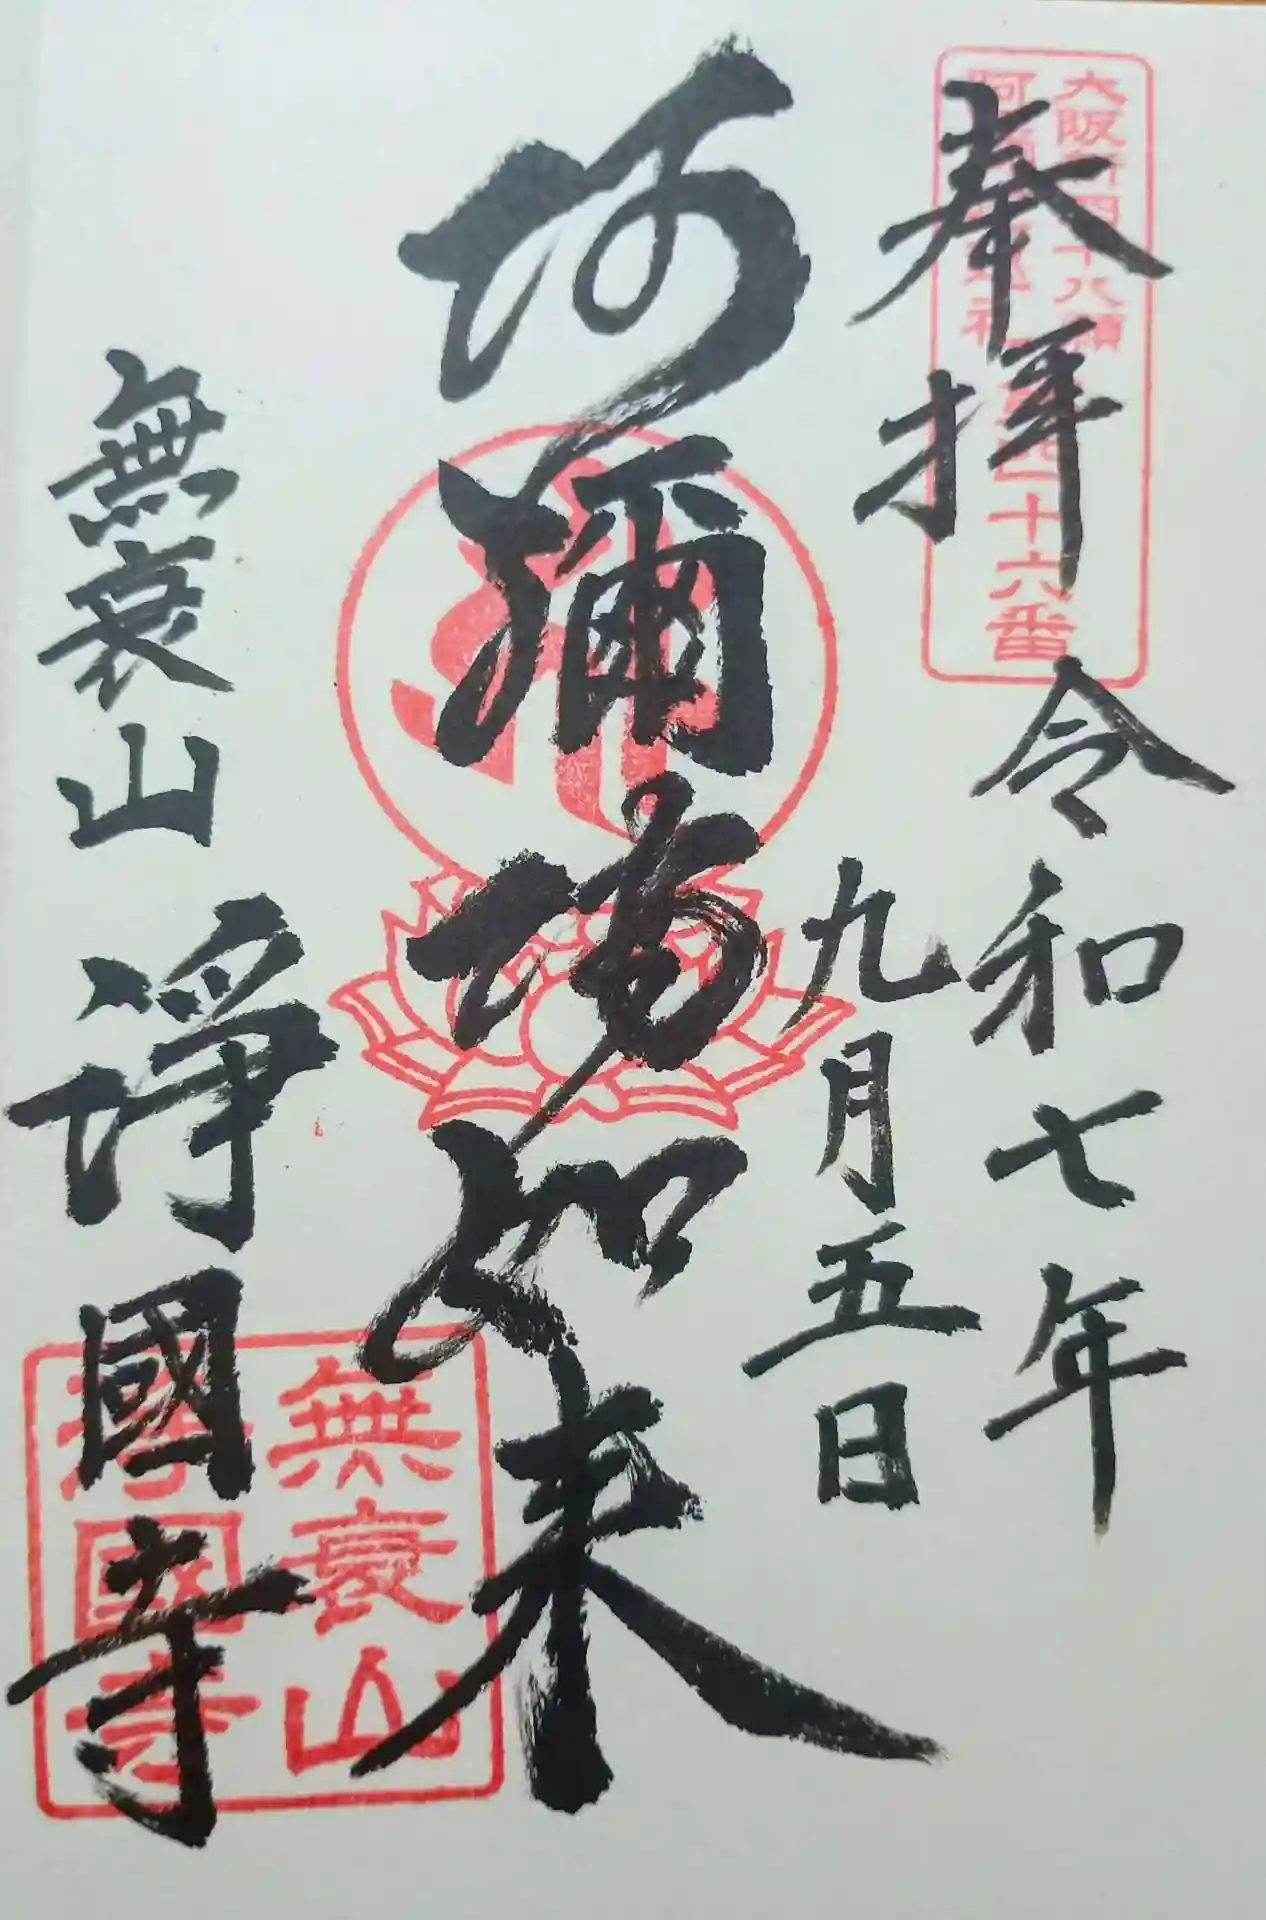 奉拝
令和七年
九月五日
阿彌陀如来
無衰山
淨國寺
大阪新四十八願
十六番
無衰山
淨國寺